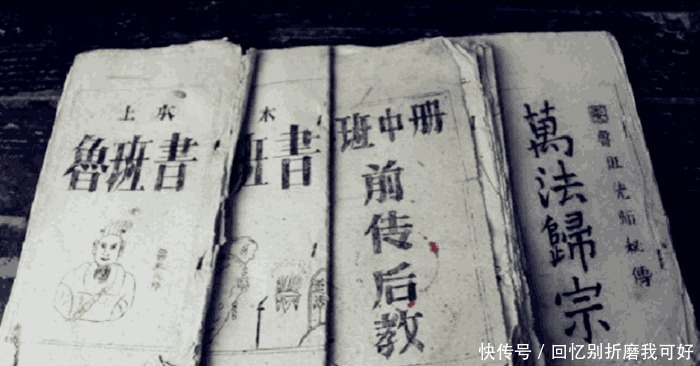 上本
魯班書
本
班書
班中册
前传后教
魯班先师秘傳
萬法歸宗
快传号 / 回忆别折磨我可好